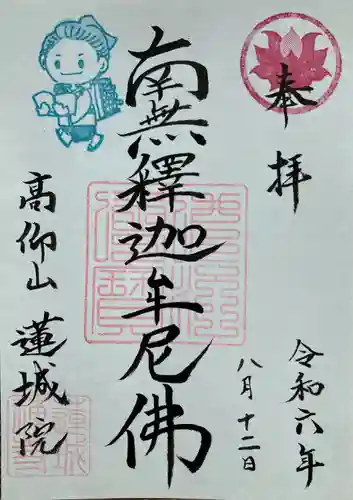 奉拝
令和六年
八月十二日
南無釋迦牟尼佛
高仰山
蓮城院